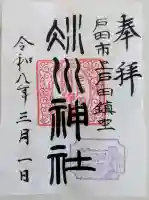 奉拝
戸田市上戸田鎮座
氷川神社
令和八年三月一日